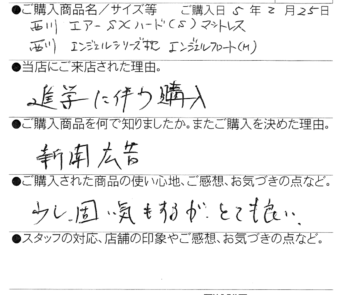 ●ご購入商品名／サイズ等　ご購入日 5 年 2 月 25日
西川 エアーSX ハード(S) マットレス
西川 エンジェルシリーズ枕 エンジェルフロート(M)
●当店にご来店された理由。
進学に伴う購入
●ご購入商品を何で知りましたか。またご購入を決めた理由。
新聞広告
●ご購入された商品の使い心地、ご感想、お気づきの点など。
少し固い気もするが、とても良い、
●スタッフの対応、店舗の印象やご感想、お気づきの点など。